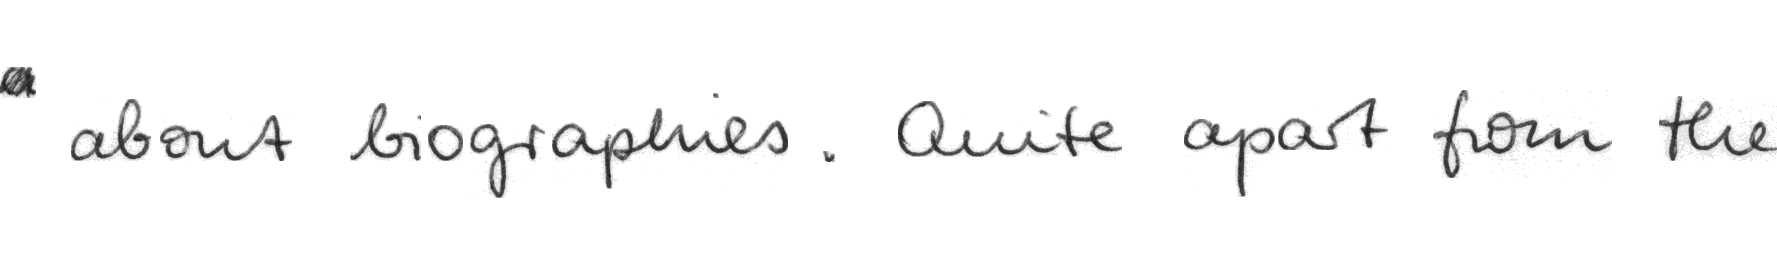 about biographies. Quite apart from the